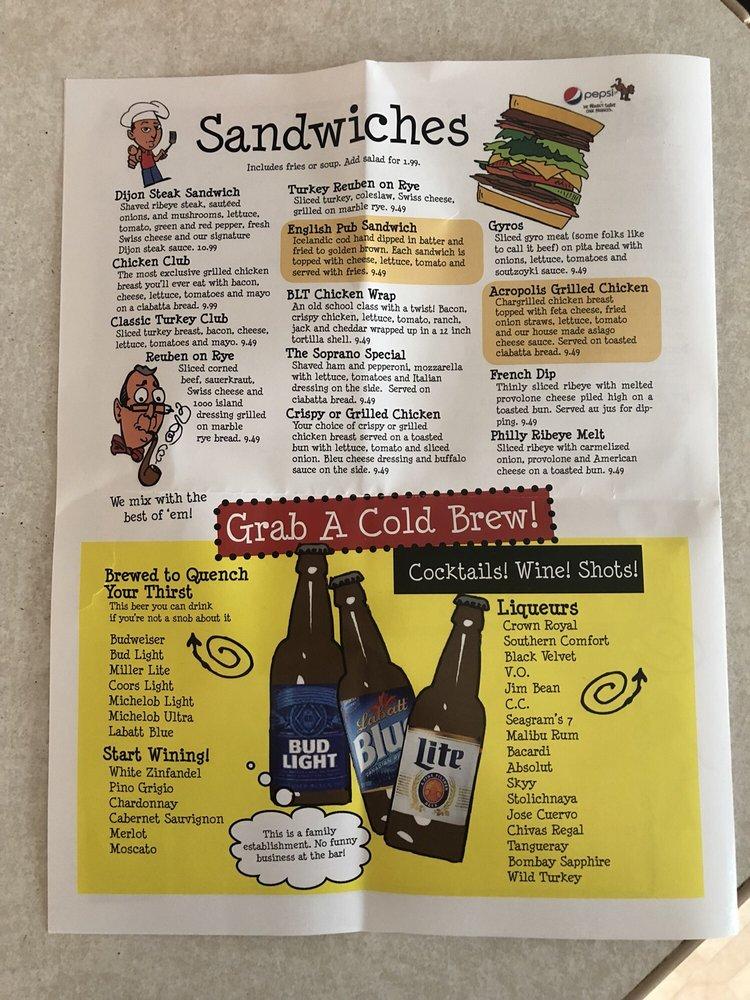 Sandwiches
Includes fries or soup. Add salad for 1.99.
pepsi
Dijon Steak Sandwich
Shaved ribeye steak, sautéed
onions, and mushrooms, lettuce,
tomato, green and red pepper, fresh
Swiss cheese and our signature
Dijon steak sauce. 10.99
Chicken Club
The most exclusive grilled chicken
breast you'll ever eat with bacon,
cheese, lettuce, tomatoes and mayo
on a ciabatta bread. 9.99
Classic Turkey Club
Sliced turkey breast, bacon, cheese,
lettuce, tomatoes and mayo. 9.49
Reuben on Rye
Sliced corned
beef, sauerkraut,
Swiss cheese and
1000 island
dressing grilled
on marble
rye bread. 9.49
We mix with the
best of 'em!
Turkey Reuben on Rye
Sliced turkey, coleslaw, Swiss cheese,
grilled on marble rye. 9.49
English Pub Sandwich
Icelandic cod hand dipped in batter and
fried to golden brown. Each sandwich is
topped with cheese, lettuce, tomato and
served with fries. 9.49
BLT Chicken Wrap
An old school class with a twist! Bacon,
crispy chicken, lettuce, tomato, ranch,
jack and cheddar wrapped up in a 12 inch
tortilla shell. 9.49
The Soprano Special
Shaved ham and pepperoni, mozzarella
with lettuce, tomatoes and Italian
dressing on the side. Served on
ciabatta bread. 9.49
Crispy or Grilled Chicken
Your choice of crispy or grilled
chicken breast served on a toasted
bun with lettuce, tomato and sliced
onion. Bleu cheese dressing and buffalo
sauce on the side. 9.49
Gyros
Sliced gyro meat (some folks like
to call it beef) on pita bread with
onions, lettuce, tomatoes and
soutzoyki sauce. 9.49
Acropolis Grilled Chicken
Chargrilled chicken breast
topped with feta cheese, fried
onion straws, lettuce, tomato
and our house made asiago
cheese sauce. Served on toasted
ciabatta bread. 9.49
French Dip
Thinly sliced ribeye with melted
provolone cheese piled high on a
toasted bun. Served au jus for dip-
ping. 9.49
Philly Ribeye Melt
Sliced ribeye with carmelized
onion, provolone and American
cheese on a toasted bun. 9.49
Grab A Cold Brew!
Cocktails! Wine! Shots!
Brewed to Quench
Your Thirst
This beer you can drink
if you're not a snob about it
Budweiser
Bud Light
Miller Lite
Coors Light
Michelob Light
Michelob Ultra
Labatt Blue
Start Wining!
White Zinfandel
Pino Grigio
Chardonnay
Cabernet Sauvignon
Merlot
Moscato
BUD
LIGHT
Labatt
Blue
Lite
This is a family
establishment. No funny
business at the bar!
Liqueurs
Crown Royal
Southern Comfort
Black Velvet
V.O.
Jim Bean
C.C.
Seagram's 7
Malibu Rum
Bacardi
Absolut
Skyy
Stolichnaya
Jose Cuervo
Chivas Regal
Tangueray
Bombay Sapphire
Wild Turkey